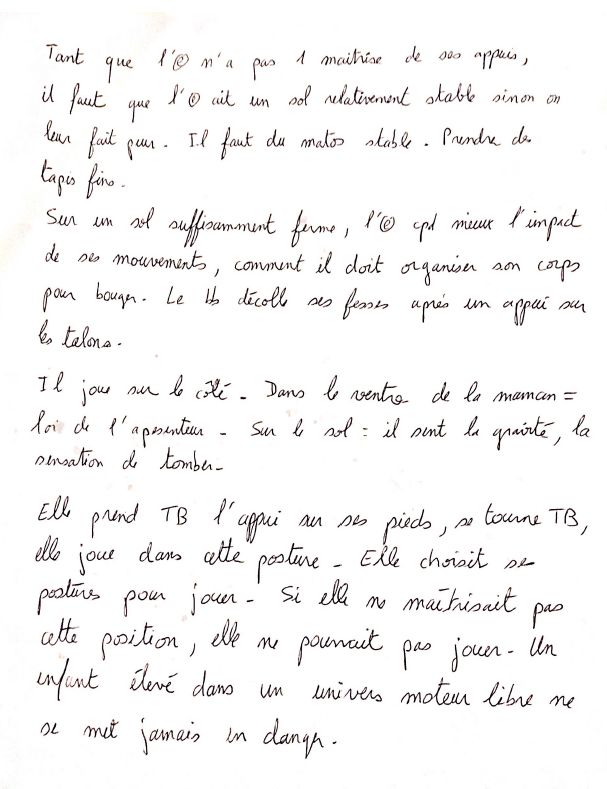 Tant que l'@ n'a pas 1 maitrise de ses appuis,
il faut que l'@ ait un sol relativement stable sinon on
leur fait peur. Il faut du matos stable. Prendre des
tapis fins.
Sur un sol suffisamment ferme, l'@ cpd mieux l'impact
de ses mouvements, comment il doit organiser son corps
pour bouger. Le bb décolle ses fesses après un appui sur
les talons.
Il joue sur le côté - Dans le ventre de la maman =
loi de l'apesenteur - Sur le sol : il sent la gravité, la
sensation de tomber -
Elle prend TB l'appui sur ses pieds, se tourne TB,
elle joue dans cette posture - Elle choisit ses
postures pour jouer - Si elle ne maîtrisait pas
cette position, elle ne pourrait pas jouer - Un
enfant élevé dans un univers moteur libre ne
se met jamais en danger.